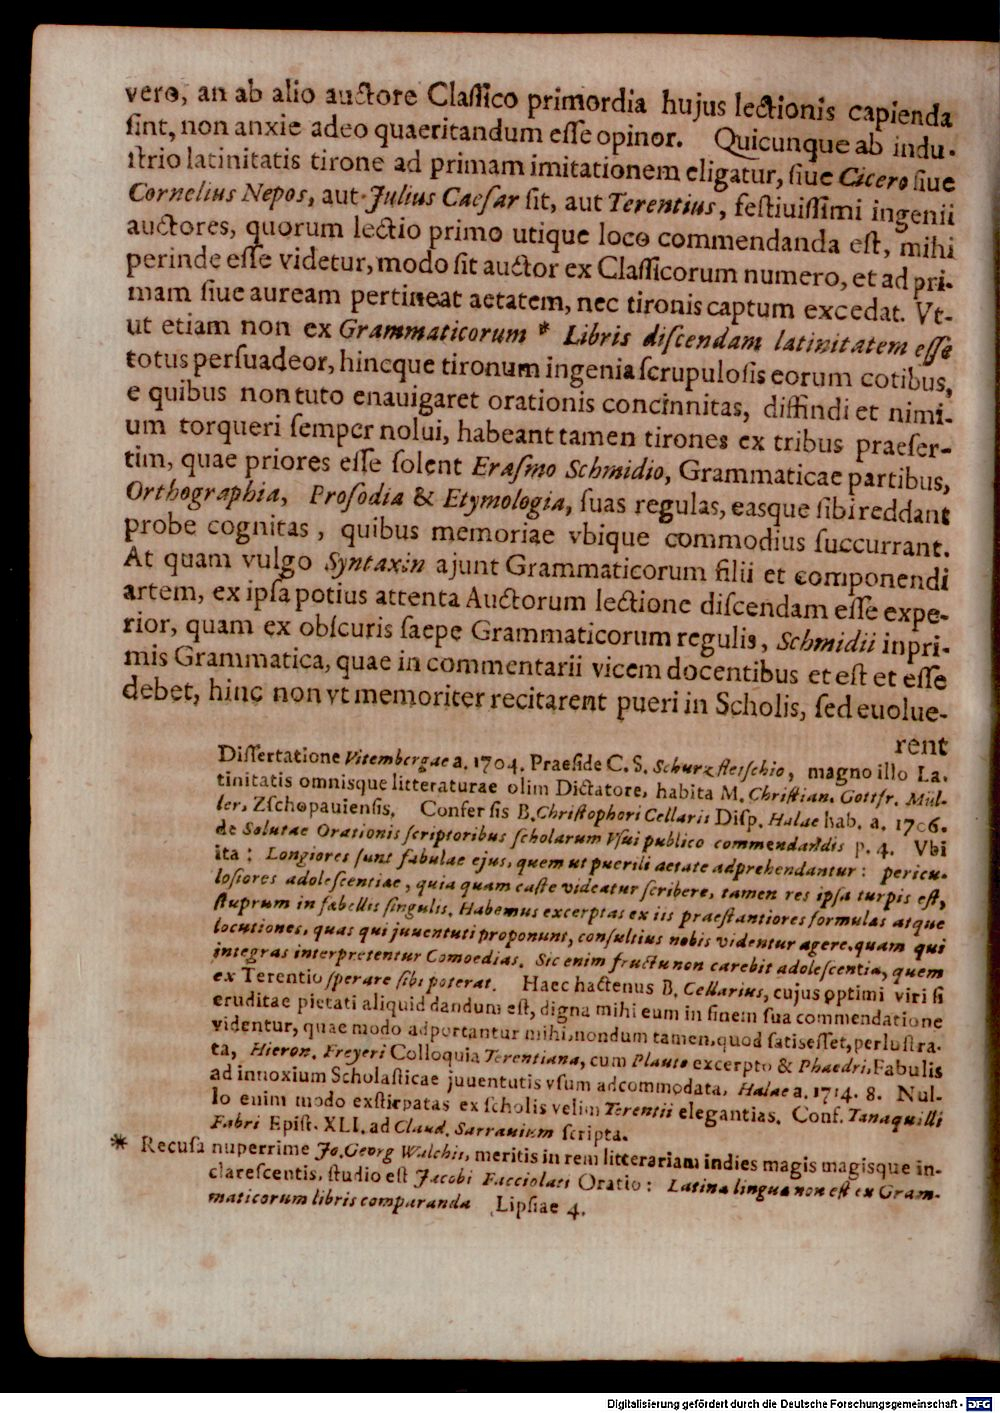 vero, an ab alio auctore Claſſico primordia hujus lectionis capienda
ſint, non anxie adeo quaeritandum eſſe opinor. Quicunque ab indu-
ſtrio latinitatis tirone ad primam imitationem eligatur, ſiue Cicero ſiue
Cornelius Nepos, aut Julius Caeſar ſit, aut Terentius, feſtiuiſſimi ingenii
auctores, quorum lectio primo utique loco commendanda eſt, mihi
perinde eſſe videtur, modo ſit auctor ex Claſſicorum numero, et ad pri-
mam ſiue auream pertineat aetatem, nec tironis captum excedat. Vt-
ut etiam non ex Grammaticorum * Libris diſcendam latinitatem eſſe
totus perſuadeor, hincque tironum ingenia ſcrupuloſis eorum cotibus,
e quibus non tuto enauigaret orationis concinnitas, diffindi et nimi-
um torqueri ſemper nolui, habeant tamen tirones ex tribus praeſer-
tim, quae priores eſſe ſolent Eraſmo Schmidio, Grammaticae partibus,
Orthographia, Proſodia & Etymologia, ſuas regulas, easque ſibi reddant
probe cognitas, quibus memoriae vbique commodius ſuccurrant.
At quam vulgo Syntaxin ajunt Grammaticorum filii et componendi
artem, ex ipſa potius attenta Auctorum lectione diſcendam eſſe expe-
rior, quam ex obſcuris ſaepe Grammaticorum regulis, Schmidii inpri-
mis Grammatica, quae in commentarii vicem docentibus et eſt et eſſe
debet, hinc non vt memoriter recitarent pueri in Scholis, ſed euolue-
rent
Diſſertatione Vitembergae a. 1704. Praeſide C. S. Schurzfleiſchio, magno illo La-
tinitatis omnisque litteraturae olim Dictatore, habita M. Chriſtian. Gottfr. Mül-
ler, Zſchopauienſis. Confer ſis B. Chriſtophori Cellarii Diſp. Halae hab. a. 1706.
de Solutae Orationis ſcriptoribus ſcholarum Vſui publico commendandis p. 4. Vbi
ita: Longiores ſunt fabulae ejus, quem ut puerili aetate adprehendantur: pericu-
loſiores adoleſcentiae, quia quam caſte videatur ſcribere, tamen res ipſa turpis eſt,
ſtuprum in fabellis ſingulis. Habemus excerptas ex iis praeſtantiores formulas atque
locutiones, quas qui juuentuti proponunt, conſultius nobis videntur agere, quam qui
integras interpretentur Comoedias. Sic enim fructu non carebit adoleſcentia, quem
ex Terentio ſperare ſibi poterat. Haec hactenus B. Cellarius, cujus optimi viri ſi
eruditae pietati aliquid dandum eſt, digna mihi eum in finem ſua commendatione
videntur, quae modo adportantur mihi, nondum tamen, quod ſatis eſſet, perluſtra-
ta, Hieron. Freyeri Colloquia Terentiana, cum Plauto excerpto & Phaedri, Fabulis
ad innoxium Scholaſticae juuentutis vſum adcommodata, Halae a. 1714. 8. Nul-
lo enim modo exſtirpatas ex ſcholis velim Terentii elegantias. Conf. Tanaquilli
Fabri Epiſt. XLI. ad Claud. Sarrauium ſcripta.
* Recuſa nuperrime Jo. Georg Walchii, meritis in rem litterariam indies magis magisque in-
clareſcentis, ſtudio eſt Jacobi Facciolati Oratio: Latina lingua non eſt ex Gram-
maticorum libris comparanda Lipſiae 4.
Digitalisierung gefördert durch die Deutsche Forschungsgemeinschaft - DFG